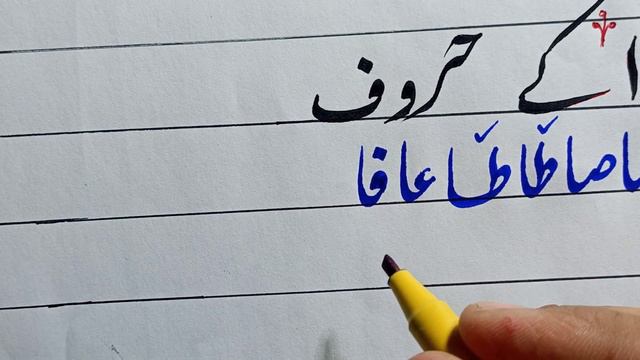 ا کے حروف
صا طا طا عا فا